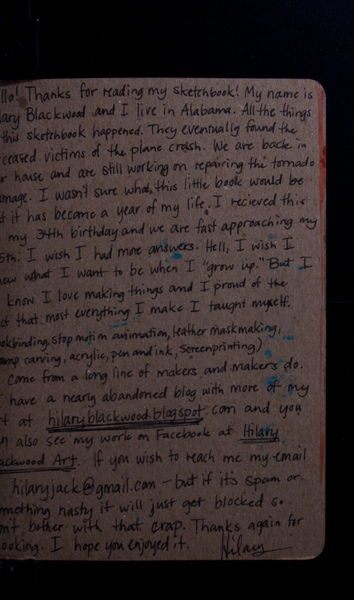 llo! Thanks for reading my sketchbook! My name is
lary Blackwood and I live in Alabama. All the things
this sketchbook happened. They eventually found the
ceased victims of the plane crash. We are back in
r house and are still working on repairing the tornado
amage. I wasn't sure what this little book would be
t it has become a year of my life. I recieved this
my 34th birthday and we are fast approaching my
5th. I wish I had more answers. Hell, I wish I
new what I want to be when I "grow up." But I
know I love making things and I proud of the
ct that most everything I make I taught myself.
okbinding, stop motion animation, leather maskmaking,
amp carving, acrylic, pen and ink, screenprinting)
come from a long line of makers and makers do.
have a nearly abandoned blog with more of my
t at hilaryblackwood.blogspot.com and you
n also see my work on Facebook at Hilary
ackwood Art. If you wish to reach me my email
hilaryjack@gmail.com - but if it's spam or
mething nasty it will just get blocked so
n't bother with that crap. Thanks again for
ooking. I hope you enjoyed it. Hilary